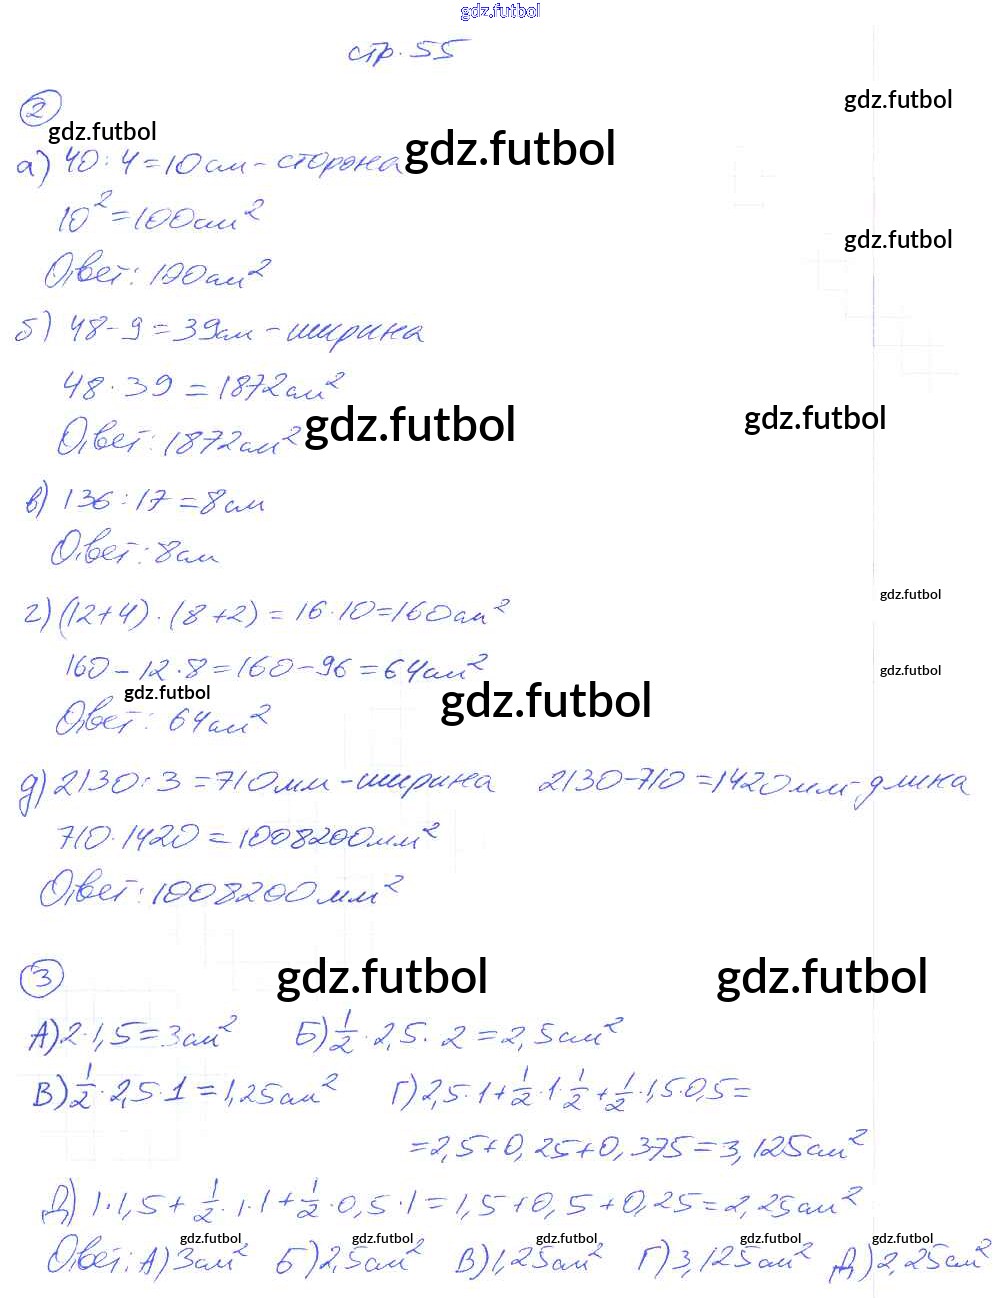 gdz.futbol
стр. 55
gdz.futbol
2
gdz.futbol
gdz.futbol
а) 40 : 4 = 10 см - сторона
10² = 100 см²
gdz.futbol
Ответ: 100 см²
б) 48 - 9 = 39 см - ширина
48 · 39 = 1872 см²
gdz.futbol
gdz.futbol
Ответ: 1872 см²
в) 136 : 17 = 8 см
Ответ: 8 см
gdz.futbol
г) (12 + 4) · (8 + 2) = 16 · 10 = 160 см²
160 - 12 · 8 = 160 - 96 = 64 см²
gdz.futbol
gdz.futbol
gdz.futbol
Ответ: 64 см²
д) 2130 : 3 = 710 мм - ширина 2130 - 710 = 1420 мм - длина
710 · 1420 = 1008200 мм²
Ответ: 1008200 мм²
3
gdz.futbol
gdz.futbol
А) 2 · 1,5 = 3 см² Б) 1/2 · 2,5 · 2 = 2,5 см²
В) 1/2 · 2,5 · 1 = 1,25 см² Г) 2,5 · 1 + 1/2 · 1 · 1/2 + 1/2 · 1,5 · 0,5 =
= 2,5 + 0,25 + 0,375 = 3,125 см²
Д) 1 · 1,5 + 1/2 · 1 · 1 + 1/2 · 0,5 · 1 = 1,5 + 0,5 + 0,25 = 2,25 см²
gdz.futbol gdz.futbol gdz.futbol gdz.futbol gdz.futbol
Ответ: А) 3 см² Б) 2,5 см² В) 1,25 см² Г) 3,125 см² Д) 2,25 см²